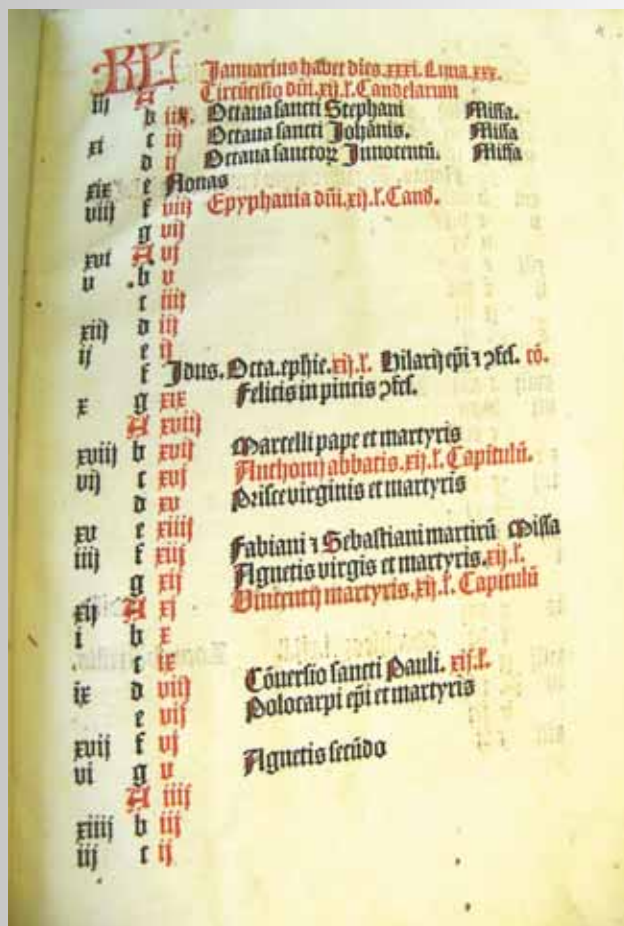 KL Januarius habet dies .xxxi. Luna .xxx.
iij A Circūcisio dñi .xij. l. Candelarum
b iiij Octaua sancti Stephani Missa.
xi c iij Octaua sancti Johānis. Missa
d ij Octaua sanctoꝝ Innocentū. Missa
xix e Nonas
viij f viij Epyphania dñi .xij. l. Cand.
g vij
xvi A vj
v b v
c iiij
xiij d iij
ij e ij
f Jdus. Octa. ephie .xij. l. Hilarij ep̄i ⁊ ꝯfes. cō.
x g xix Felicis in pincis ꝯfes.
A xviij
xviij b xvij Marcelli pape et martyris
vij c xvj Anthonij abbatis .xij. l. Capitulū.
d xv Prisce virginis et martyris
xv e xiiij
iiij f xiij Fabiani ⁊ Sebastiani martirū Missa
g xij Agnetis virgis et martyris .xij. l.
xij A xj Vincentij martyris .xij. l. Capitulū
i b x
c ix
ix d viij Cōuersio sancti Pauli. xij. l.
e vij Polocarpi ep̄i et martyris
xvij f vj
vi g v Agnetis secūdo
A iiij
xiiij b iij
iij c ij